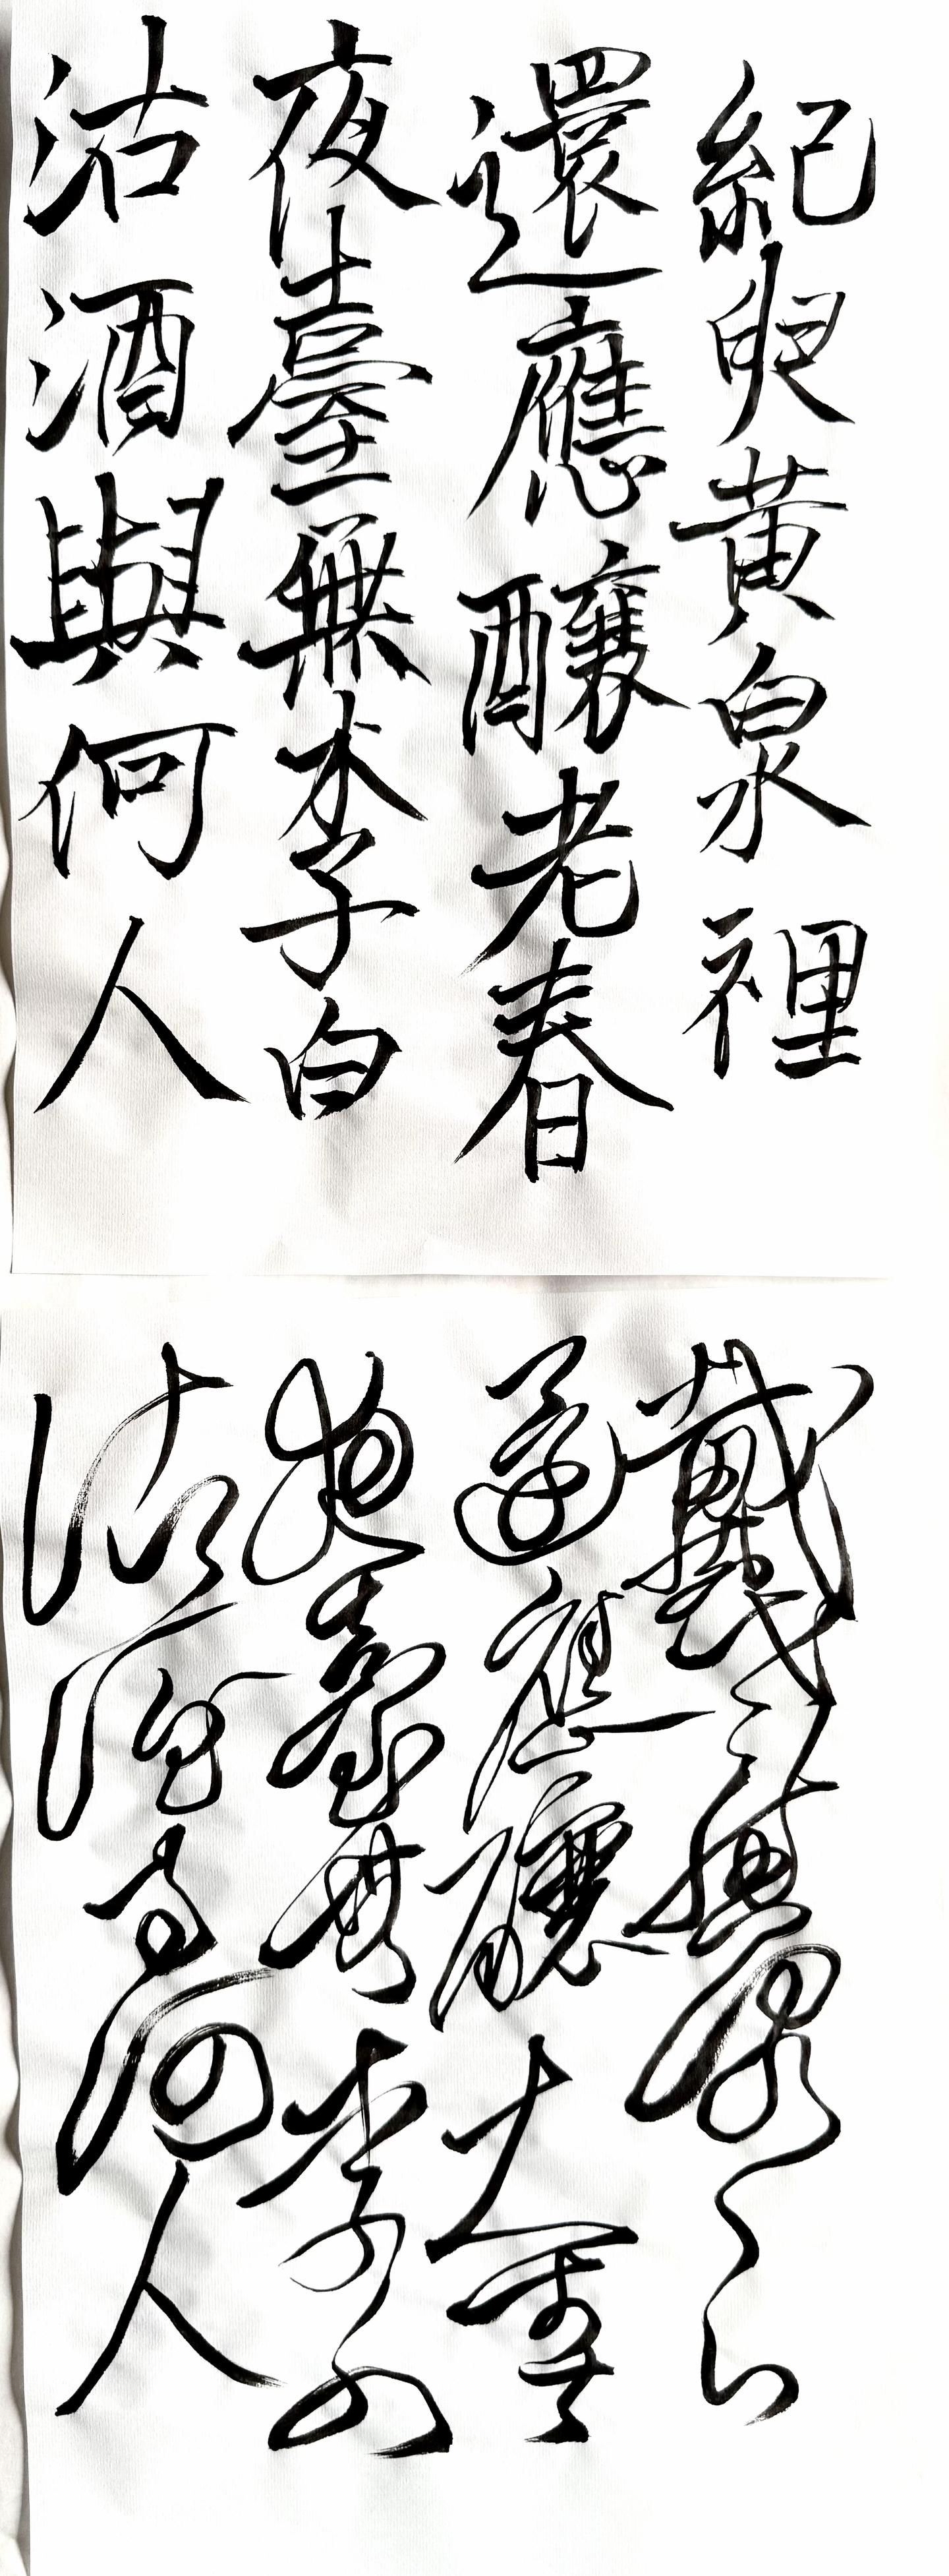 紀叟黄泉裡
還應釀老春
夜臺無李白
沽酒與何人
戴老黄泉下
還應釀大春
夜臺無李白
沽酒與何人